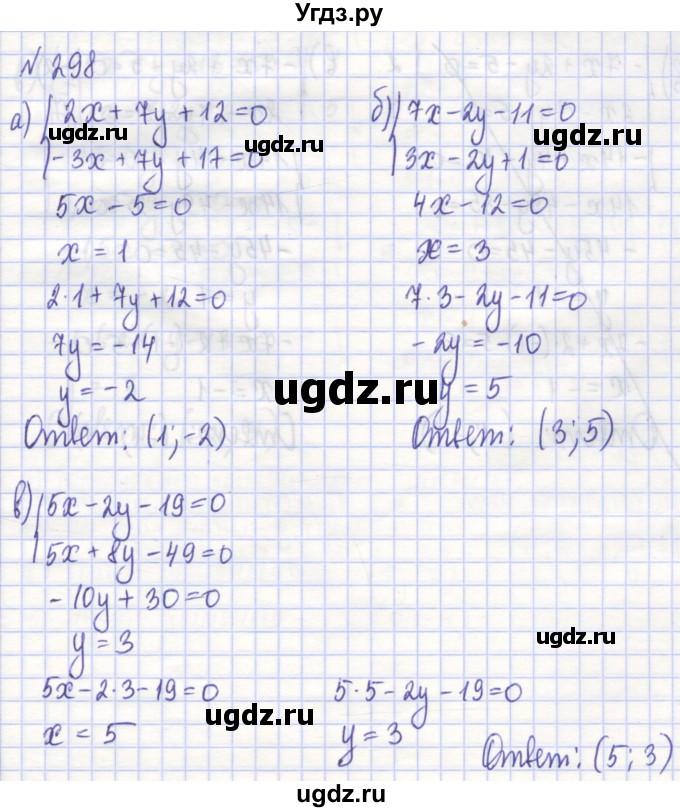 Угдз.ру
N 298
а) 2x + 7y + 12 = 0
-3x + 7y + 17 = 0
5x - 5 = 0
x = 1
2·1 + 7y + 12 = 0
7y = -14
y = -2
Ответ: (1; -2)
б) 7x - 2y - 11 = 0
3x - 2y + 1 = 0
4x - 12 = 0
x = 3
7·3 - 2y - 11 = 0
-2y = -10
y = 5
Ответ: (3; 5)
в) 5x - 2y - 19 = 0
5x + 8y - 49 = 0
-10y + 30 = 0
y = 3
5x - 2·3 - 19 = 0
x = 5
5·5 - 2y - 19 = 0
y = 3
Ответ: (5; 3)
ugdz.ru
ugdz.ru
ugdz.ru
ugdz.ru
ugdz.ru
ugdz.ru
ugdz.ru
ugdz.ru